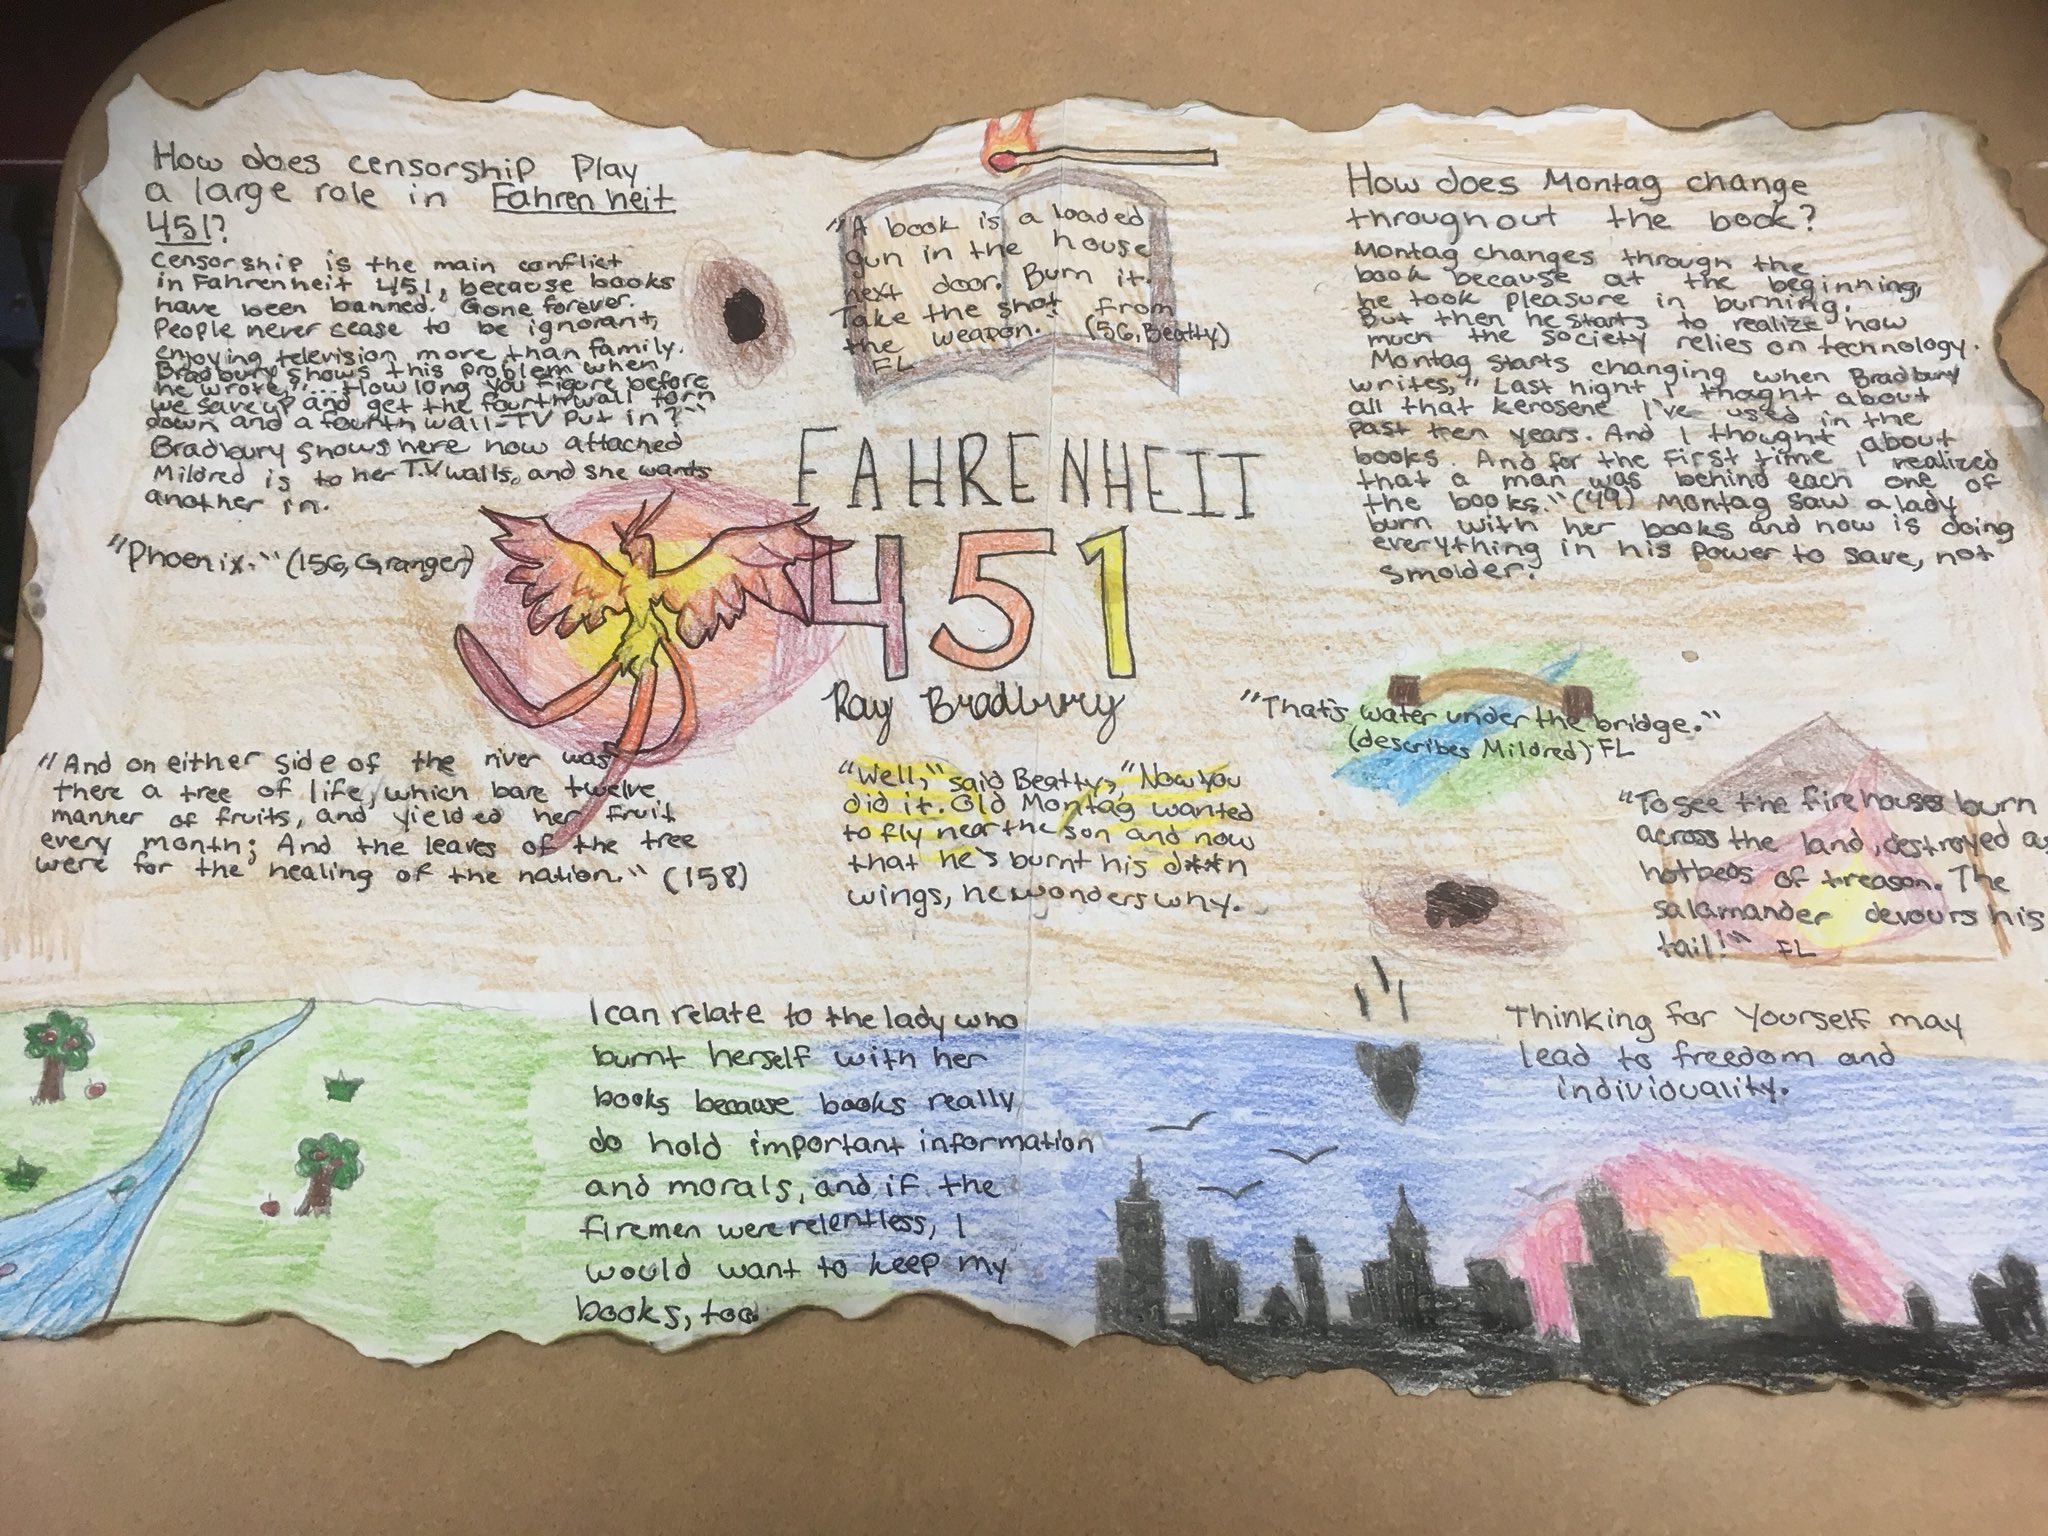 How does censorship Play
a large role in Fahrenheit
451?
Censorship is the main conflict
in Fahrenheit 451, because books
have been banned. Gone forever.
People never cease to be ignorant,
enjoying television more than family.
Bradbury shows this problem when
he wrote, "...How long you figure before
we save up and get the fourth wall torn
down and a fourth wall-TV put in?"
Bradbury shows here how attached
Mildred is to her T.V walls, and she wants
another in.
"A book is a loaded
gun in the house
next door. Burn it.
Take the shot from
the weapon." (56, Beatty)
FL
How does Montag change
throughout the book?
Montag changes through the
book because at the beginning,
he took pleasure in burning.
But then he starts to realize how
much the society relies on technology.
Montag starts changing when Bradbury
writes, "Last night I thought about
all that kerosene I've used in the
past ten years. And I thought about
books. And for the first time I realized
that a man was behind each one of
the books." (49) Montag saw a lady
burn with her books and now is doing
everything in his power to save, not
smolder.
FAHRENHEIT
451
Ray Bradbury
"Phoenix." (156, Granger)
"And on either side of the river was
there a tree of life, which bare twelve
manner of fruits, and yielded her fruit
every month; And the leaves of the tree
were for the healing of the nation." (158)
"Well," said Beatty, "Now you
did it. Old Montag wanted
to fly near the son and now
that he's burnt his d**n
wings, he wonders why.
"That's water under the bridge."
(describes Mildred) FL
"To see the firehouses burn
across the land, destroyed as
hotbeds of treason. The
salamander devours his
tail!" FL
I can relate to the lady who
burnt herself with her
books because books really
do hold important information
and morals, and if the
firemen were relentless, I
would want to keep my
books, too.
Thinking for yourself may
lead to freedom and
individuality.